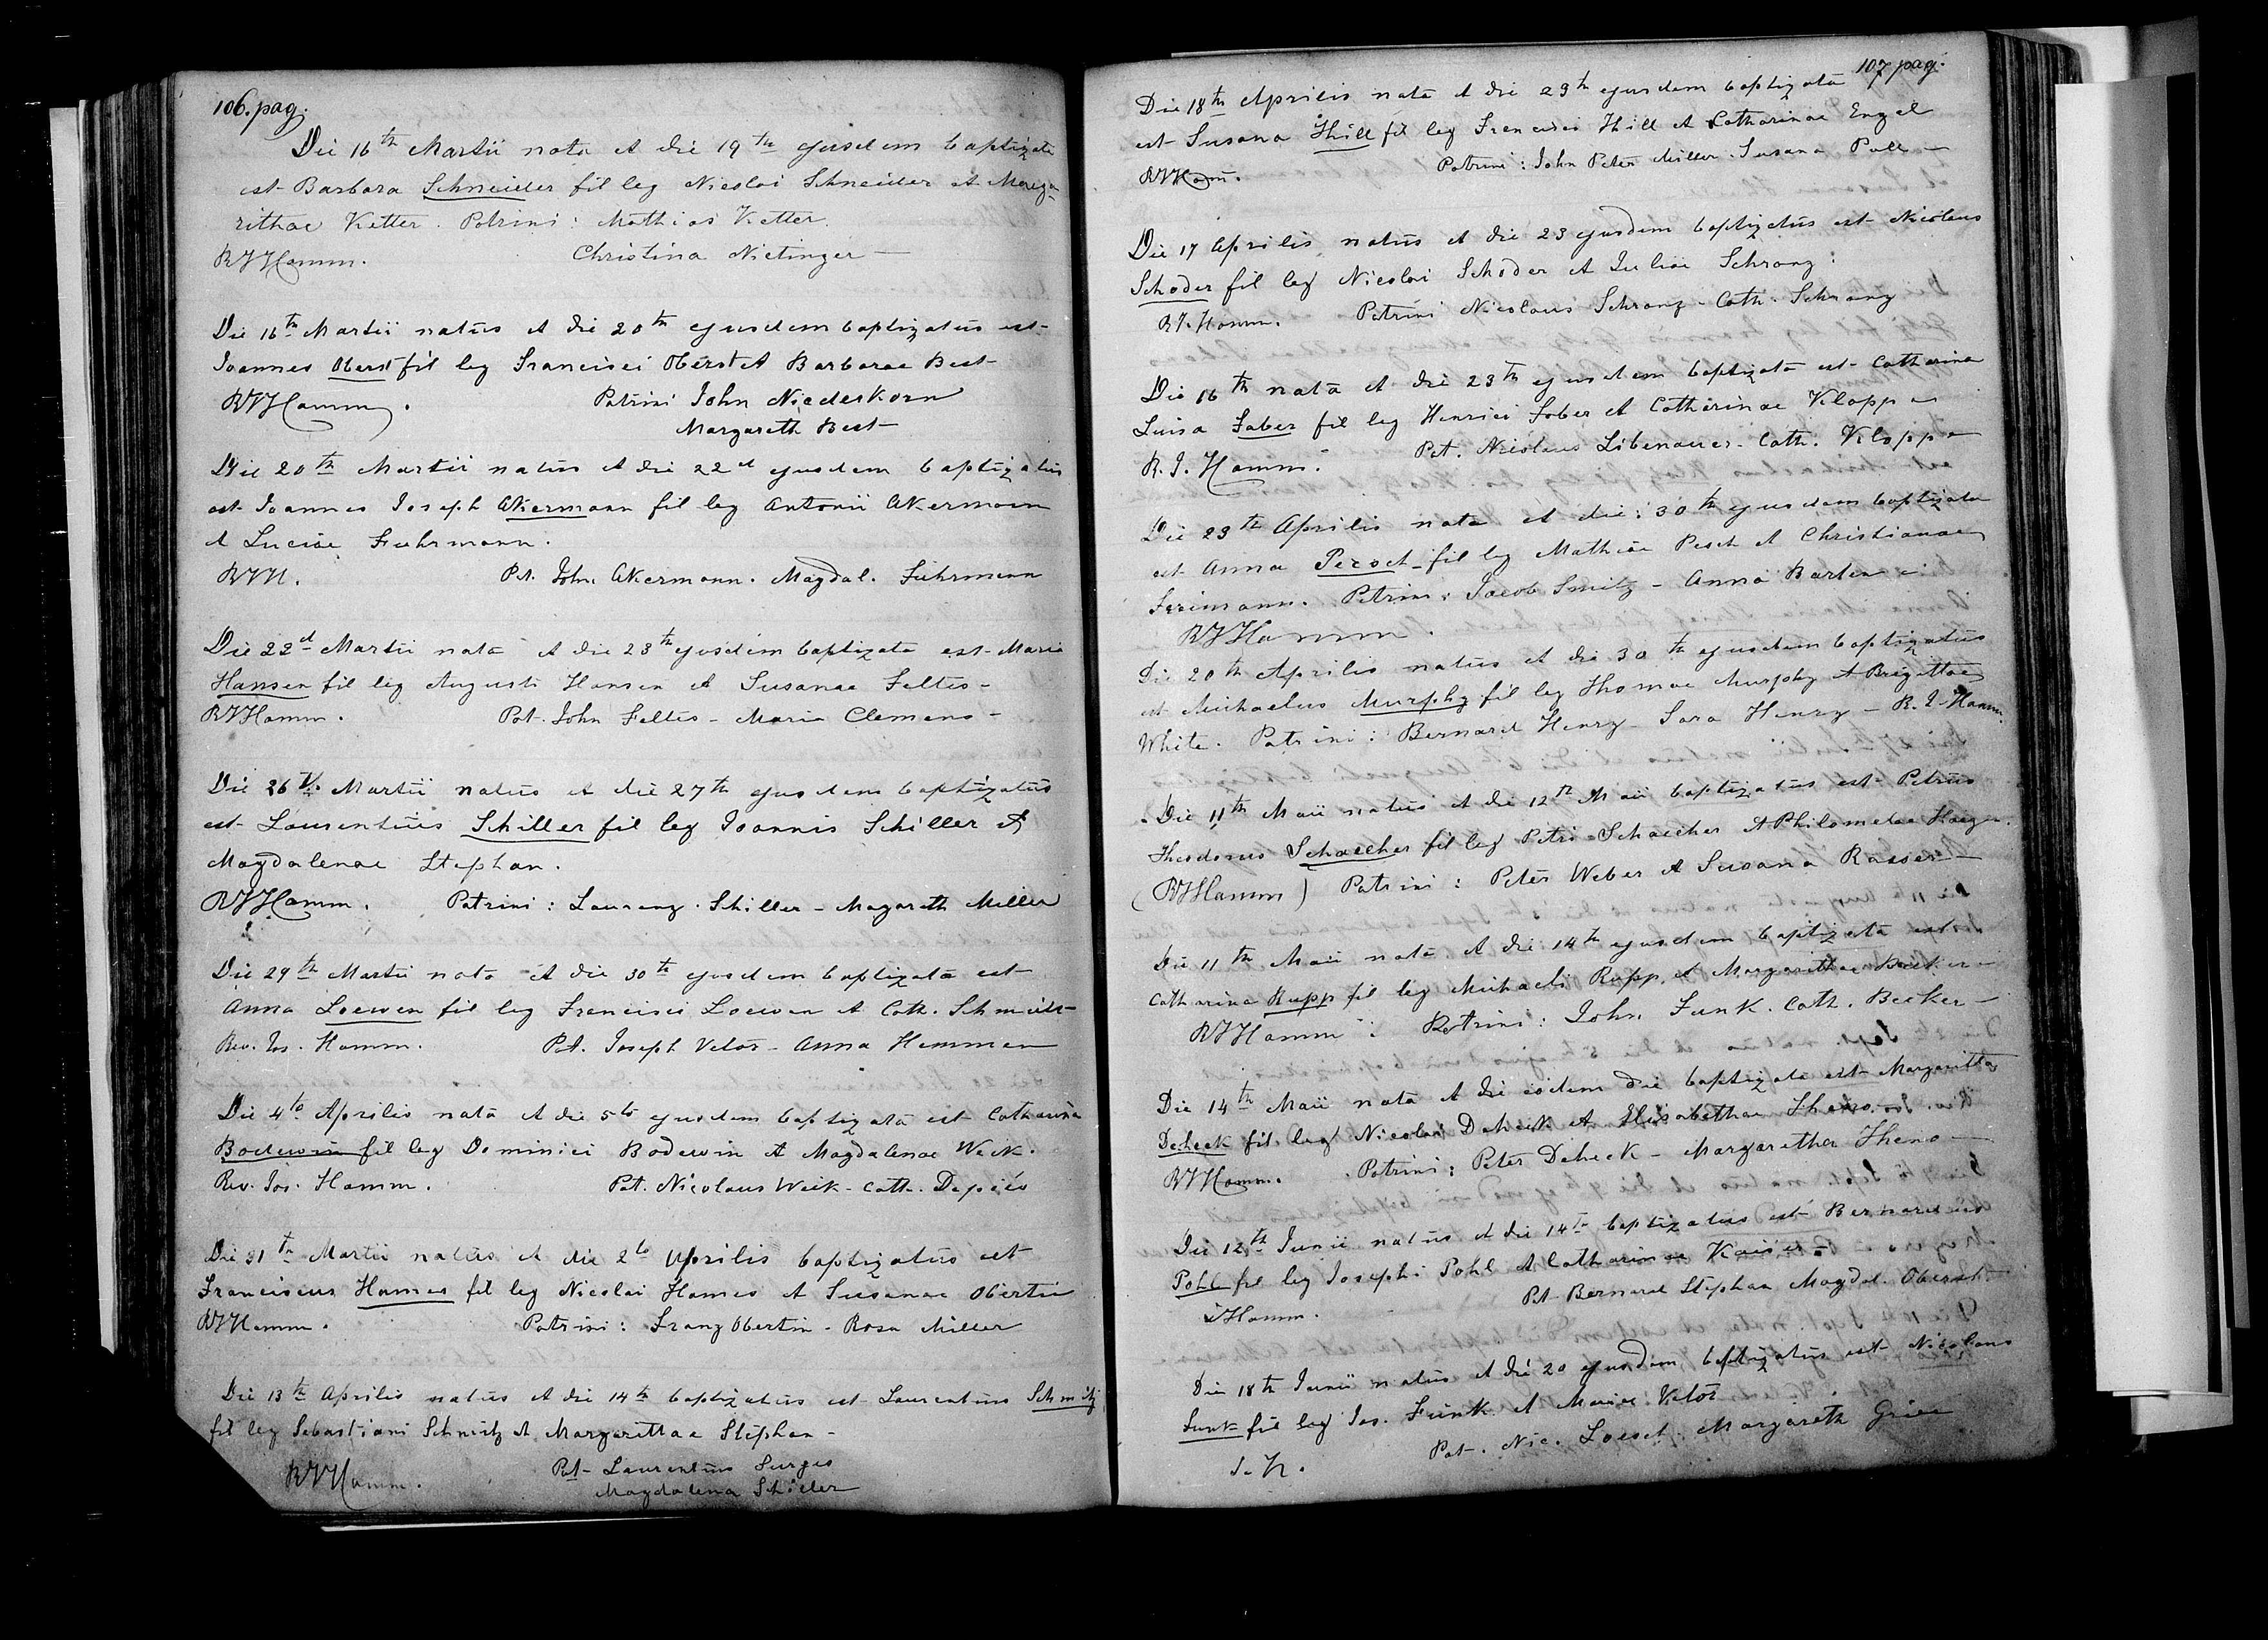 106. pag.
Die 16th Martii nata et die 19th ejusdem baptizata
est Barbara Schneider fil leg Nicolai Schneider et Marga-
rithae Ketter. Patrini: Mathias Ketter.
RJHamm. Christina Nietinger —
Die 16th Martii natus et die 20th ejusdem baptizatus est
Joannes Oberst fil leg Francisci Oberst et Barbarae Best
RJHamm. Patrini John Niederkorn
Margareth Best
Die 20th Martii natus et die 22d ejusdem baptizatus
est Joannes Joseph Akermann fil leg Antonii Akermann
et Luciae Fuhrmann.
RJH. Pat. John Akermann. Magdal. Fuhrmann
Die 22d Martii nata et die 23th ejusdem baptizata est Maria
Hansen fil leg Augusti Hansen et Susanae Feltes -
RJHamm. Pat. John Feltes - Maria Clemens -
Die 26th Martii natus et die 27th ejusdem baptizatus
est Laurentius Schiller fil leg Joannis Schiller et
Magdalenae Stephan.
RJHamm. Patrini: Laurenz Schiller - Magareth Miller
Die 29th Martii nata et die 30th ejusdem baptizata est
Anna Loewen fil leg Francisci Loewen et Cath. Schmidt
Rev. Jos. Hamm. Pat. Joseph Velos - Anna Hemmen
Die 4to Aprilis nata et die 5to ejusdem baptizata est Catharina
Bodewin fil leg Dominici Bodewin et Magdalenae Weik.
Rev. Jos. Hamm. Pat. Nicolaus Weik - Cath. Depiés
Die 31th Martii natus et die 2to Aprilis baptizatus est
Franciscus Hames fil leg Nicolai Hames et Susanae Obertin
RJHamm. Patrini: Franz Obertin - Rosa Miller
Die 13th Aprilis natus et die 14th baptizatus est Laurentius Schmitz
fil leg Sebastiani Schmitz et Margarittae Stephan -
RJHamm. Pat- Laurentius Surges
Magdalena Schiller
107 pag.
Die 18th Aprilis nata et die 23th ejusdem baptizata
est Susana Thill fil leg Francisci Thill et Catharinae Engel
RJHam. Patrini: John Peter Miller. Susana Pull -
Die 17 Aprilis natus et die 23 ejusdem baptizatus est Nicolaus
Schoder fil leg Nicolai Schoder et Juliae Schranz:
RJ. Hamm. Patrini Nicolaus Schranz - Cath. Schranz
Die 16th nata et die 23th ejusdem baptizata est Catharina
Luisa Faber fil leg Henrici Faber et Catharinae Klopp -
R. J. Hamm. Pat. Nicolaus Libenauer - Cath. Klopp -
Die 23th Aprilis nata et die 30th ejusdem baptizata
est Anna Pesch fil leg Mathiae Pesch et Christianae
Freimann. Patrini: Jacob Smitz - Anna Barten -
RJHamm.
Die 20th Aprilis natus et die 30th ejusdem baptizatus
est Michaelus Murphy fil leg Thomae Murphy et Brigittae
White. Patrini: Bernard Henry - Sara Henry - R. J. Hamm.
Die 11th Maii natus et die 12th Maii baptizatus est Petrus
Theodorus Schaecher fil leg Petri Schaecher et Philomelae Haeger.
(RJHamm) Patrini: Peter Weber et Susana Rasser -
Die 11th Maii nata et die 14th ejusdem baptizata est
Catharina Rupp fil leg Michaeli Rupp et Margarithae Becker -
RJHamm: Patrini: John Funk. Cath. Becker -
Die 14th Maii nata et die eodem die baptizata est Margaritta
Deheck fil leg Nicolai Deheck et Elisabethae Theno -
RJHamm. Patrini: Peter Deheck - Margaretha Theno -
Die 12th Junii natus et die 14th baptizatus est Bernardus
Pohl fil leg Josephi Pohl et Catharinae Kaiser.
JHamm. Pat Bernard Stephan Magdal. Oberst -
Die 18th Junii natus et die 20 ejusdem baptizatus est Nicolaus
Funk fil leg Jos. Funk et Mariae Velos
J. H. Pat. Nic. Loesch. Margareth Gries